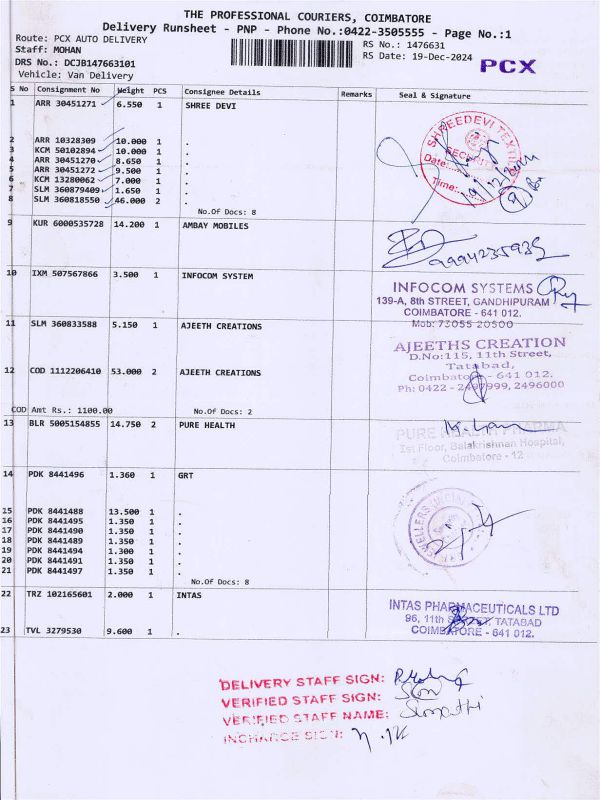 THE PROFESSIONAL COURIERS, COIMBATORE
Delivery Runsheet - PNP - Phone No.:0422-3505555 - Page No.:1
Route: PCX AUTO DELIVERY
Staff: MOHAN
DRS No.: DCJB147663101
Vehicle: Van Delivery
RS No.: 1476631
RS Date: 19-Dec-2024
PCX
S No Consignment No Weight PCS Consignee Details Remarks Seal & Signature
1 ARR 30451271 6.550 1 SHREE DEVI
2 ARR 10328309 10.000 1 .
3 KCM 50102894 10.000 1 .
4 ARR 30451270 8.650 1 .
5 ARR 30451272 9.500 1 .
6 KCM 13280062 7.000 1 .
7 SLM 360879409 1.650 1 .
8 SLM 360818550 46.000 2 .
No.Of Docs: 8
SHREEDEVI TEXTILE
SECURITY
Date:
Time:
19/12/2024
9 KUR 6000535728 14.200 1 AMBAY MOBILES
9994235935
10 IXM 507567866 3.500 1 INFOCOM SYSTEM
INFOCOM SYSTEMS
139-A, 8th STREET, GANDHIPURAM
COIMBATORE - 641 012.
Mob: 73055 20500
11 SLM 360833588 5.150 1 AJEETH CREATIONS
AJEETHS CREATION
D.No:115, 11th Street,
Tatabad,
Coimbatore - 641 012.
Ph: 0422 - 2497999, 2496000
12 COD 1112206410 53.000 2 AJEETH CREATIONS
COD Amt Rs.: 1100.00 No.Of Docs: 2
13 BLR 5005154855 14.750 2 PURE HEALTH
PURE HEALTH PHARMA
Ist Floor, Balakrishnan Hospital,
Coimbatore - 12
14 PDK 8441496 1.360 1 GRT
15 PDK 8441488 13.500 1 .
16 PDK 8441495 1.350 1 .
17 PDK 8441490 1.350 1 .
18 PDK 8441489 1.350 1 .
19 PDK 8441494 1.300 1 .
20 PDK 8441491 1.350 1 .
21 PDK 8441497 1.350 1 .
No.Of Docs: 8
22 TRZ 102165601 2.000 1 INTAS
INTAS PHARMACEUTICALS LTD
96, 11th STREET, TATABAD
COIMBATORE - 641 012.
23 TVL 3279530 9.600 1 .
DELIVERY STAFF SIGN:
VERIFIED STAFF SIGN:
VERIFIED STAFF NAME: Sumathi
INCHARGE SIGN: